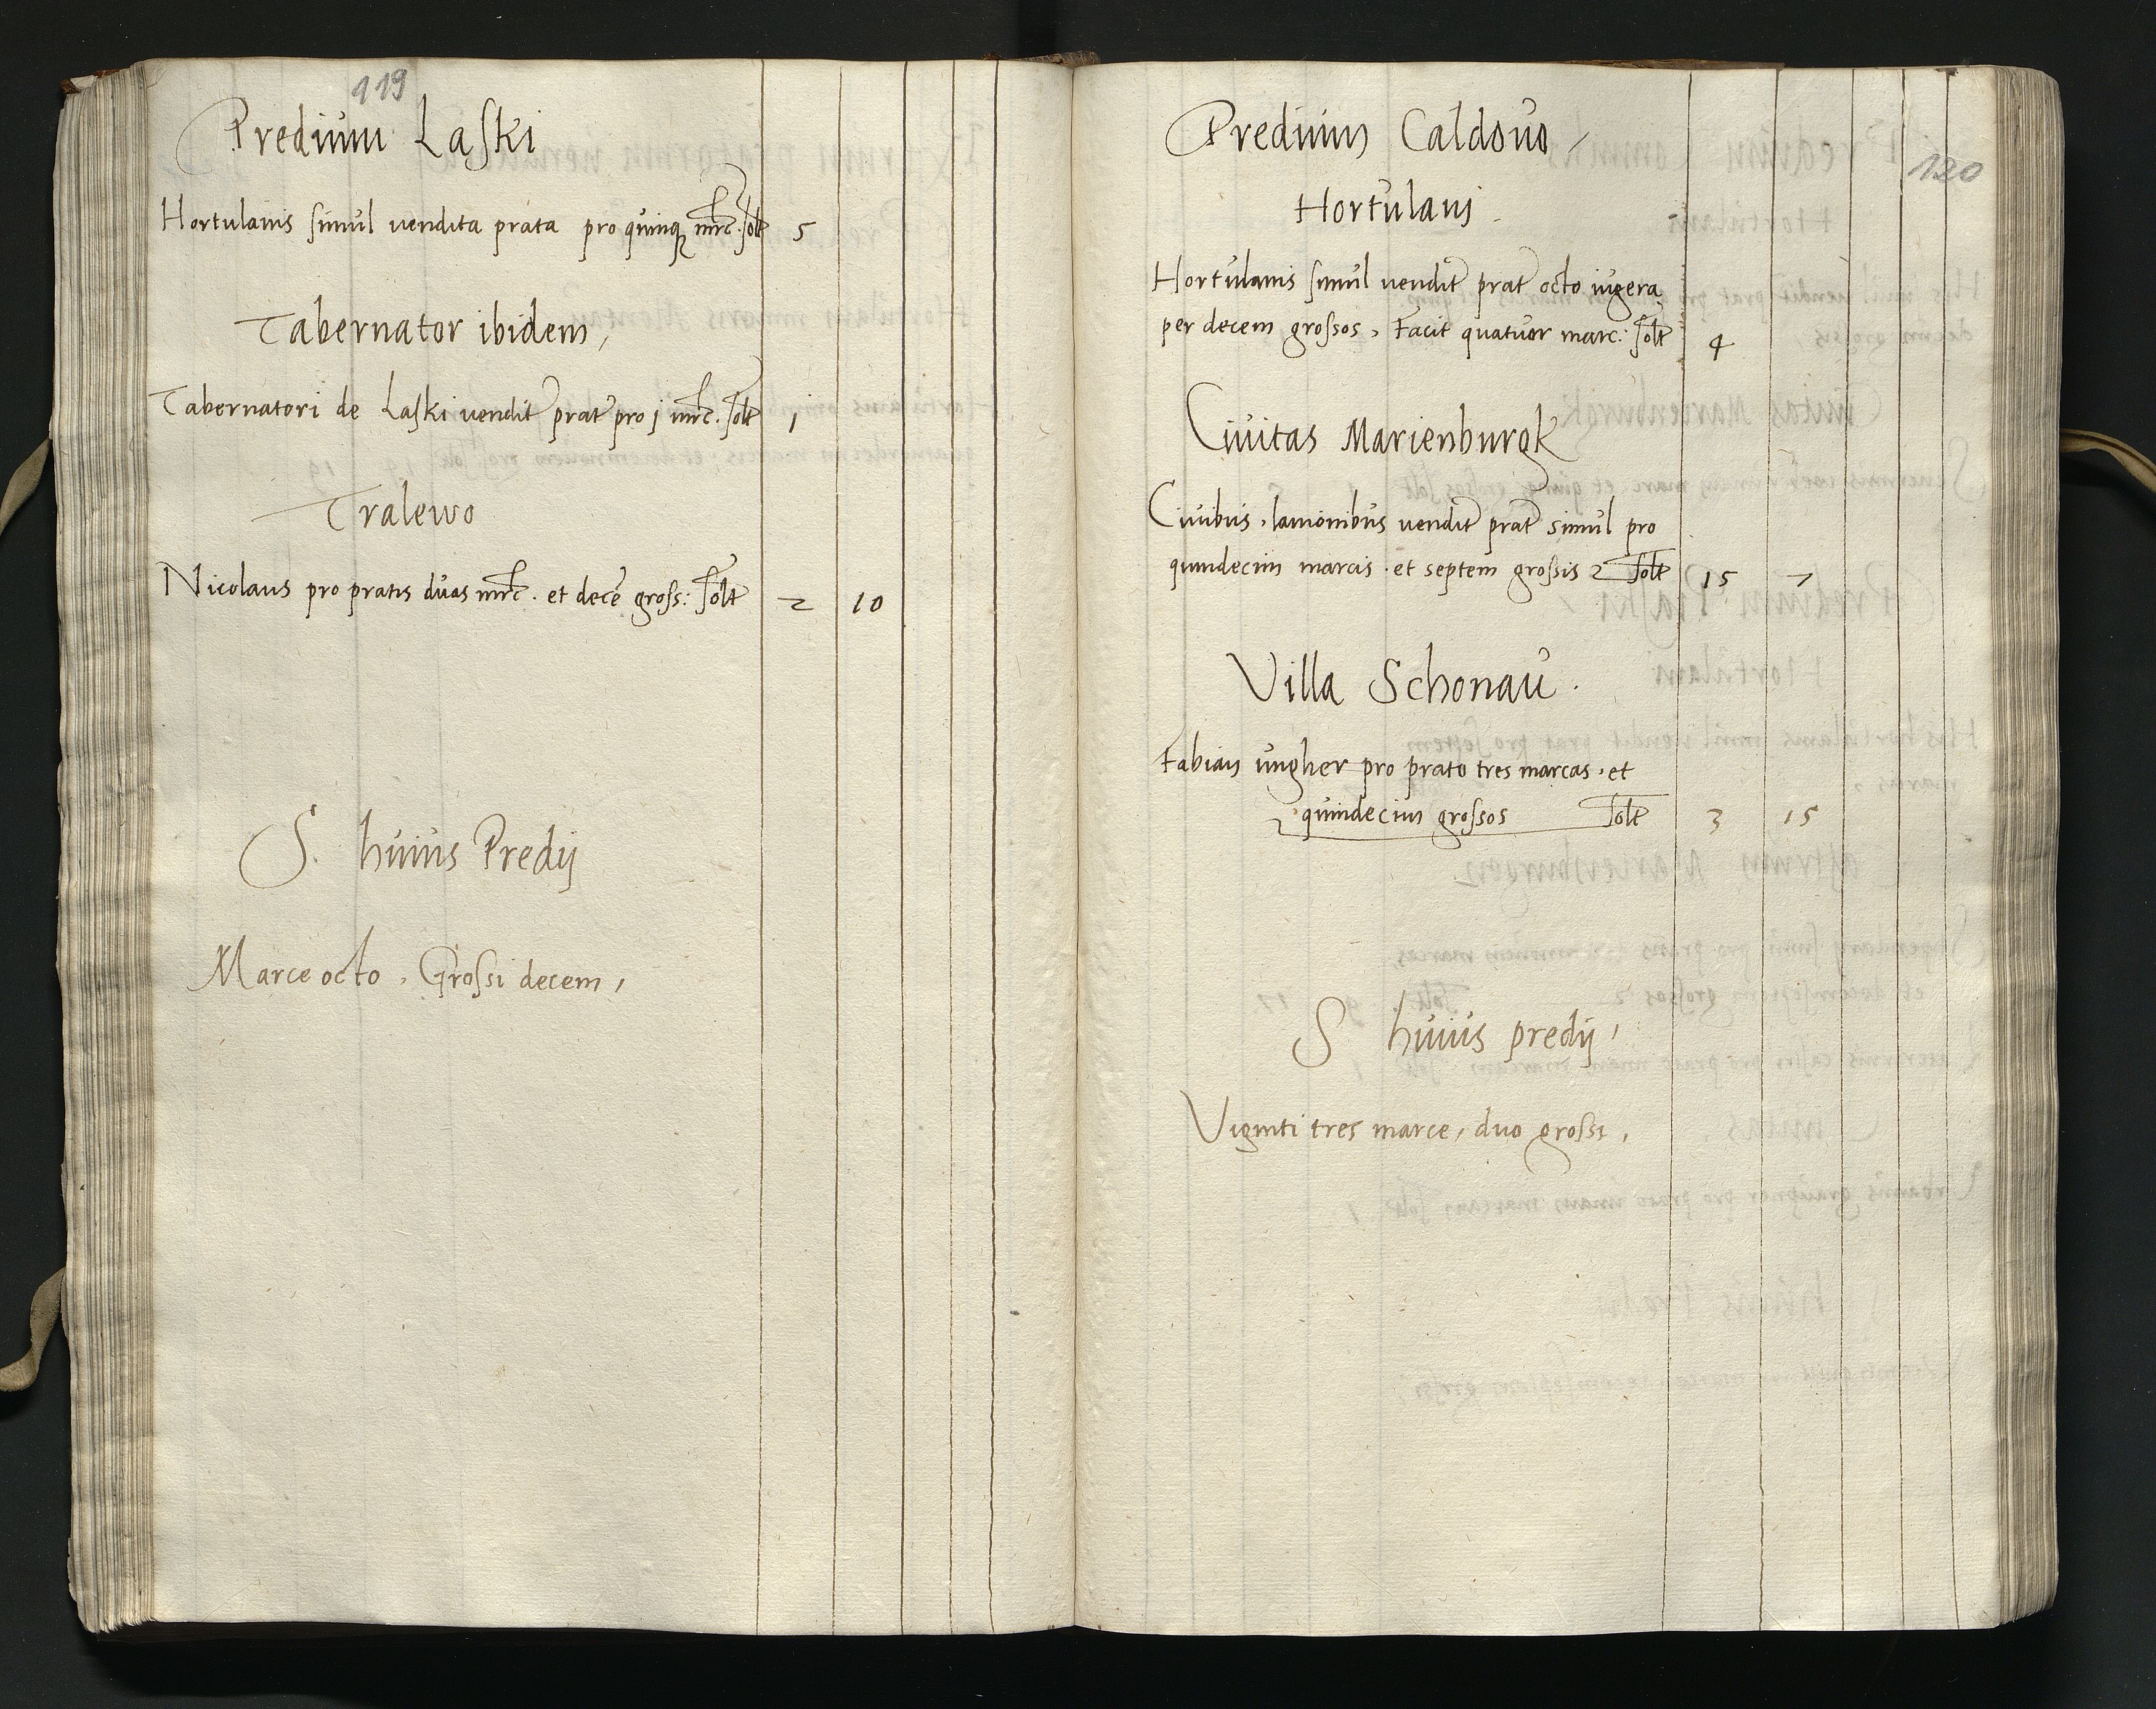 119
Predium Laski
Hortulanis simul vendita prata pro quinqꝫ mrc. solt 5
Tabernator ibidem,
Tabernatori de Laski vendit prat pro j mrc. solt 1
Tralewo
Nicolaus pro pratis duas mrc. et decē gross: solt 2 10
S. huius Predij
Marce octo, Grossi decem,
120
Predium Caldovo,
Hortulanj
Hortulanis simul vendit prat octo iugera
per decem grossos, Facit quatuor marc: solt 4
Civitas Marienburgk
Civibus, lanionibus vendit prat simul pro
quindecim marcis et septem grossis solt 15 7
Villa Schonau.
Fabian ungher pro prato tres marcas, et
quindecim grossos solt 3 15
S huius predij,
Viginti tres marce, duo grossi,